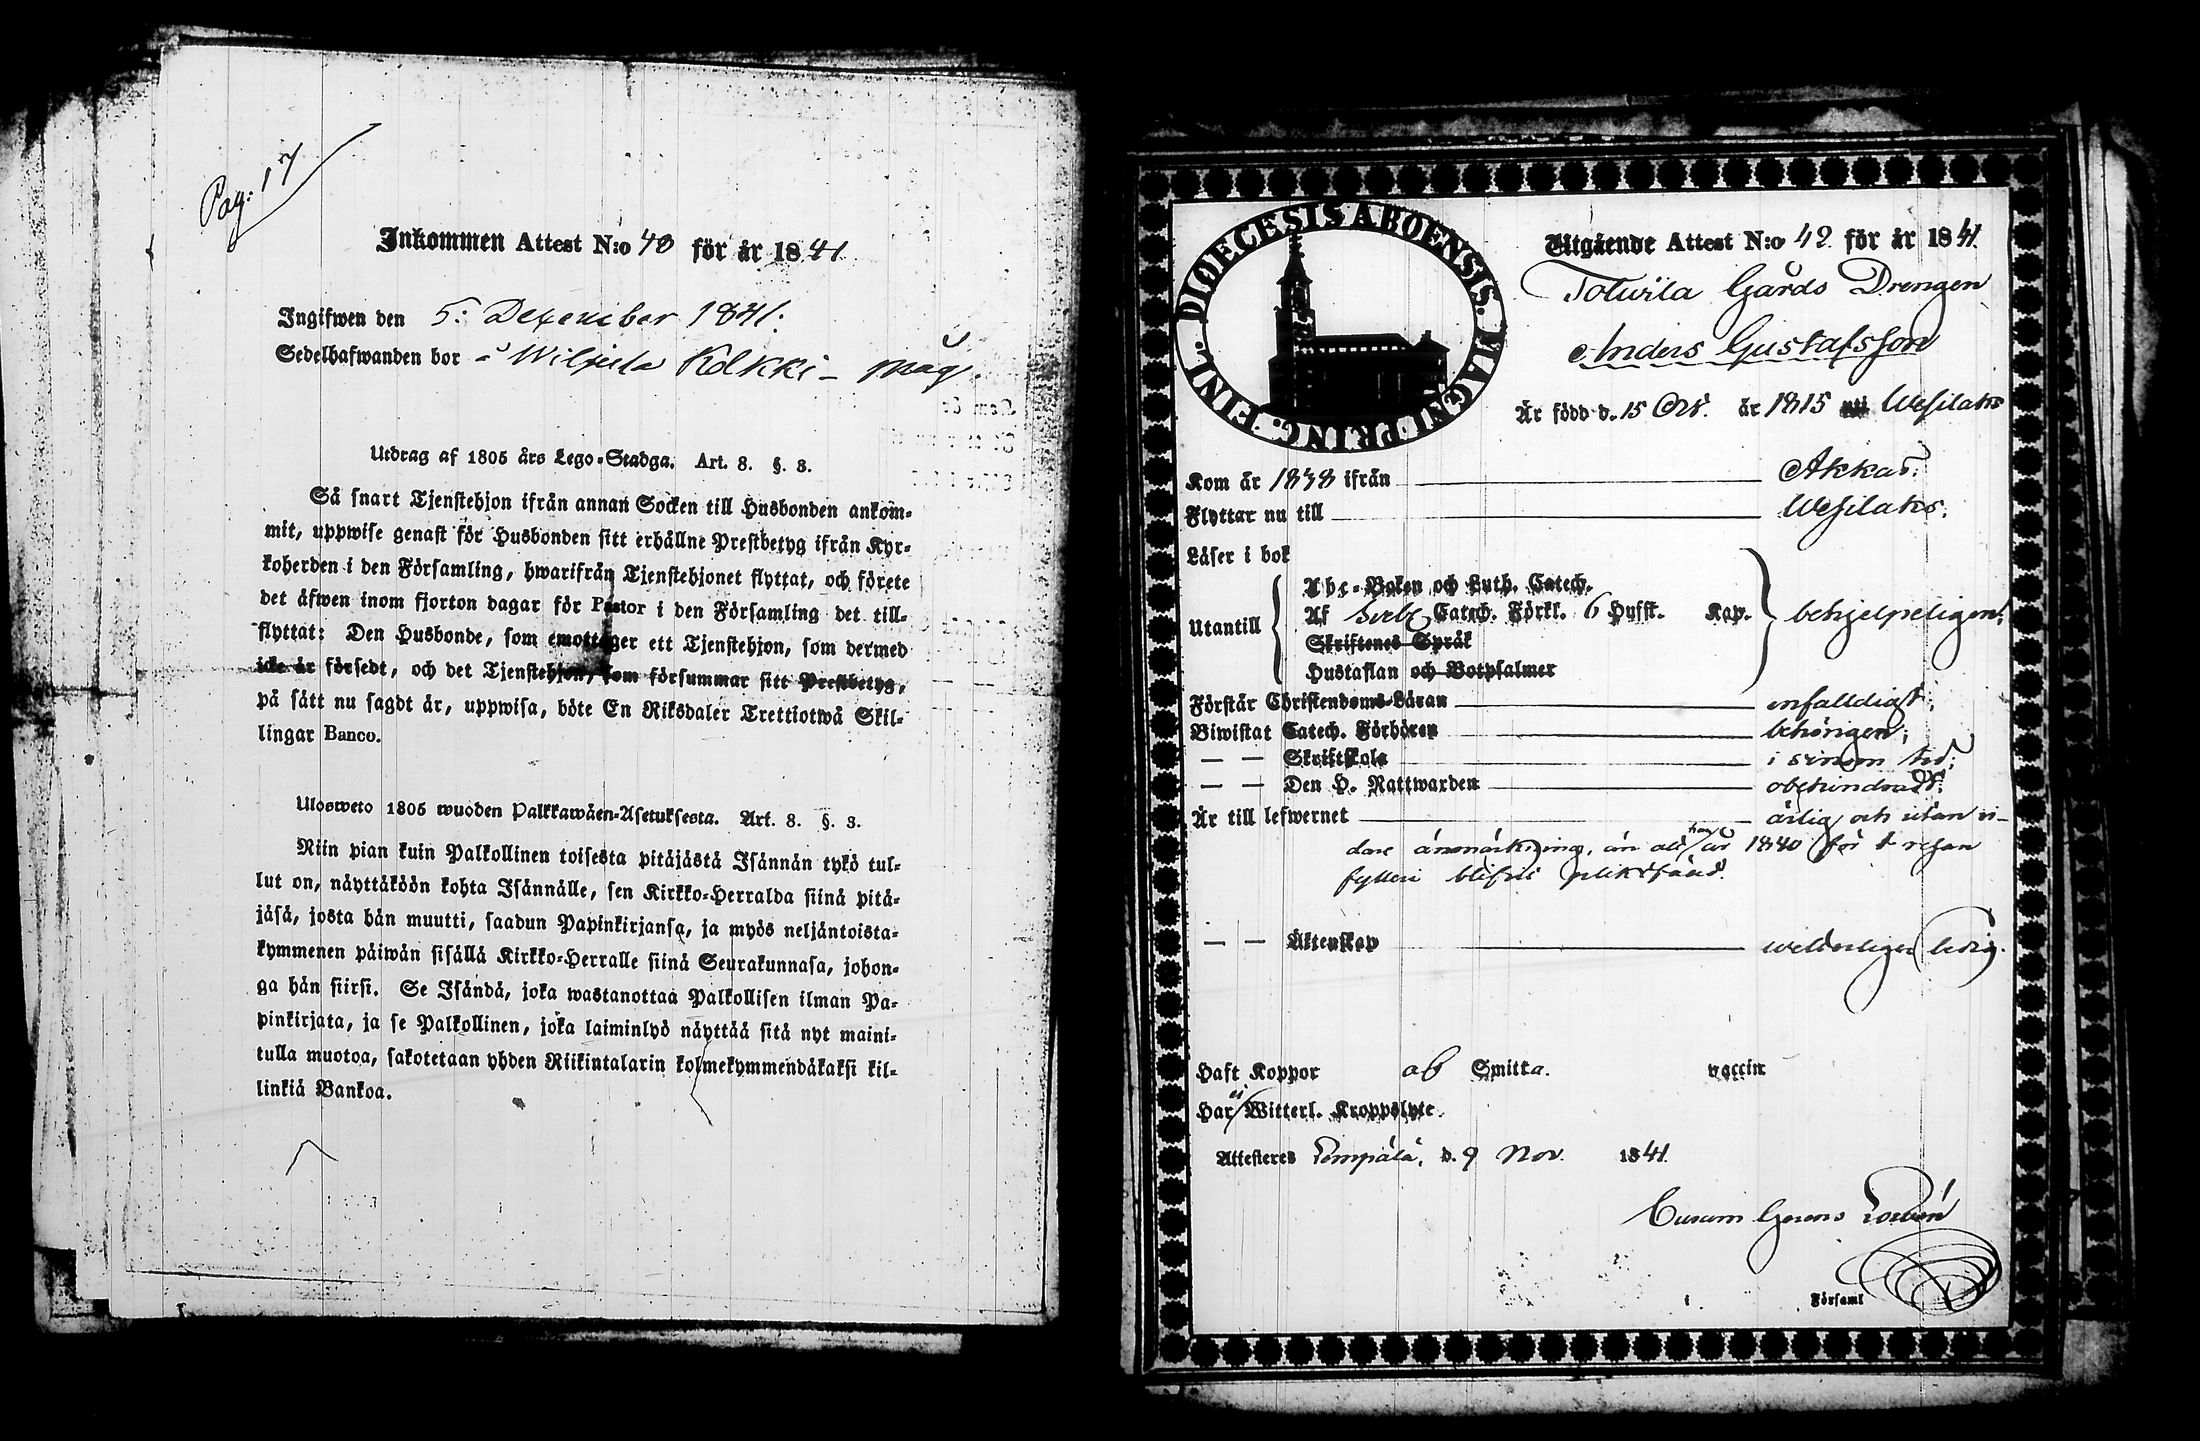 Pag: 17
Inkommen Attest N:o 48 för år 1841
Ingifwen den 5: December 1841:
Sedelhafwanden bor å Wiljula Kolkki - måg.
Utdrag af 1805 års Lego-Stadga. Art. 8. §. 3.
Så snart Tjenstehjon ifrån annan Socken till Husbonden ankom-
mit, uppwise genast för Husbonden sitt erhållne Prestbetyg ifrån Kyr-
koherden i den Församling, hwarifrån Tjenstehjonet flyttat, och förete
det äfwen inom fjorton dagar för Pastor i den Församling det till-
flyttat: Den Husbonde, som emottager ett Tjenstehjon, som dermed
icke är försedt, och det Tjenstehjon, som försummar sitt Prestbetyg,
på sätt nu sagdt är, uppwisa, böte En Riksdaler Trettiotwå Skil-
lingar Banco.
Ulosweto 1805 wuoden Palkkawäen-Asetuksesta. Art. 8. §. 3.
Niin pian kuin Palkollinen toisesta pitäjästä Isännän tykö tul-
lut on, näyttäköön kohta Isännälle, sen Kirkko-Herralda siinä pitä-
jäsä, josta hän muutti, saadun Papinkirjansa, ja myös neljäntoista-
kymmenen päiwän sisällä Kirkko-Herralle siinä Seurakunnasa, johon-
ga hän siirsi. Se Isändä, joka wastanottaa Palkollisen ilman Pa-
pinkirjata, ja se Palkollinen, joka laiminlyö näyttää sitä nyt maini-
tulla muotoa, sakotetaan yhden Riikintalarin kolmekymmendäkaksi kil-
linkiä Bankoa.
DIOECESIS ABOENSIS. MAGNI PRINC. FINL.
Utgående Attest N:o 42 för år 1841.
Totwila Gårds Drengen
Anders Gustafsson
Är född d. 15 Oct. år 1815 uti Wesilaks
Kom år 1838 ifrån Akkas.
Flyttar nu till Wesilaks.
Läser i bok
Utantill
Abc-Boken och Luth. Catech.
Af Catech. Förkl. 6 Hufst. Kap.
behjelpeligen;
Skriftenes Språk
Hustaflan och Botpsalmer
Förstår Christendoms-Läran enfalldigt;
Biwistat Catech. Förhören behörigen;
— — Skriftskola i sinom tid;
— — Den H. Nattwarden obehindradt.
Är till lefwernet ärlig och utan wi-
dare anmärkning, än att han år 1840 för 1 resan
fylleri blifvit pliktfäld.
— — Äktenskap ledig.
Haft Koppor ab Smitta. vaccin
Har ej Witterl. Kroppslyte.
Attesteres Lempälä, d. 9 Nov. 1841.
Curam Gerens
i Församl